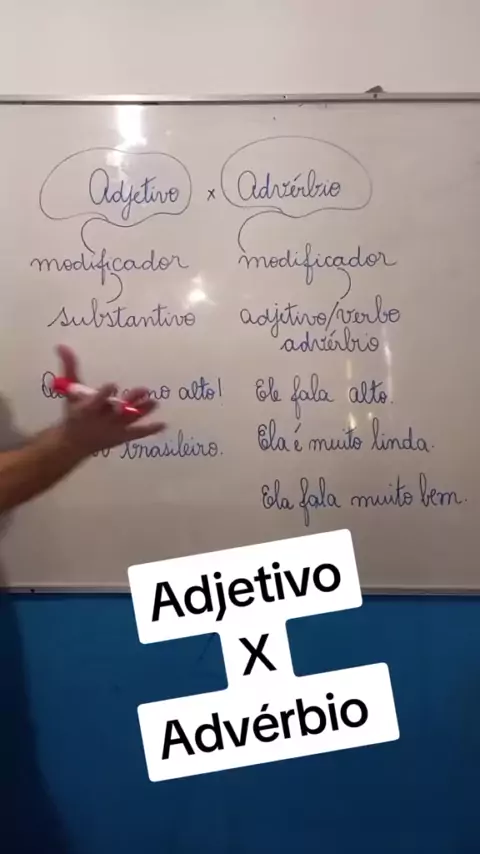 Adjetivo x Advérbio
modificador
substantivo
alto!
brasileiro.
modificador
adjetivo/verbo
advérbio
Ele fala alto.
Ela é muito linda.
Ela fala muito bem.
Adjetivo
X
Advérbio